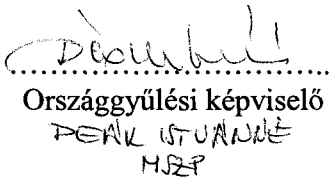 Országgyűlési képviselő
DEÁK ISTVÁNNÉ
MSZP